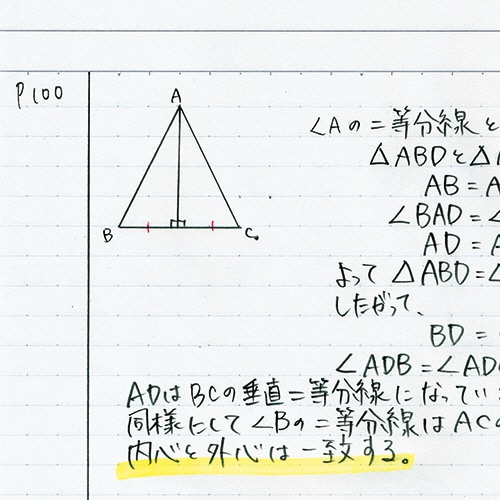 P100
A
B
C
∠Aの二等分線と
△ABDと△
AB=A
∠BAD=∠
AD=A
よって △ABD=△
したがって、
BD=
∠ADB=∠AD
ADはBCの垂直二等分線になってい
同様にして∠Bの二等分線はACの
内心と外心は一致する。